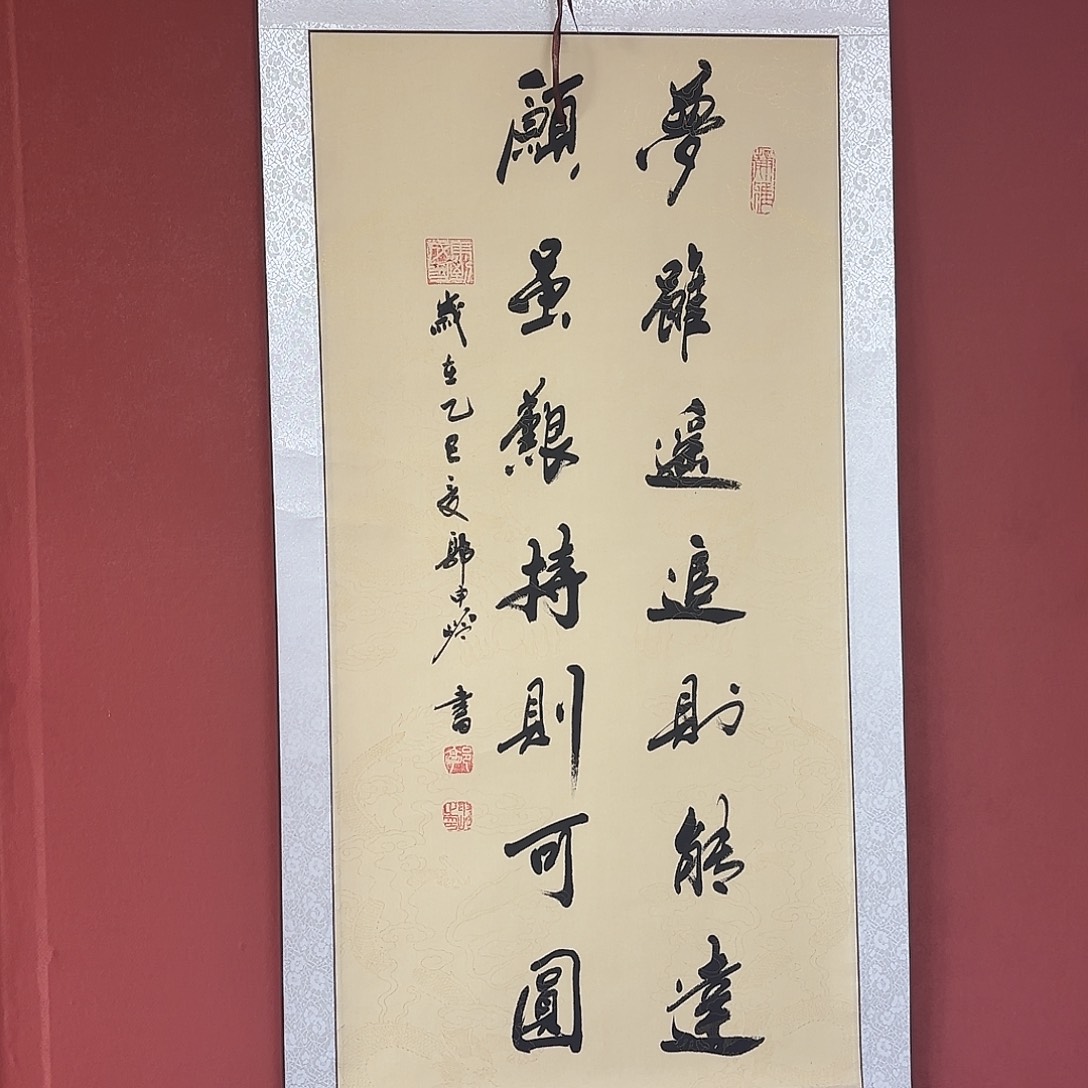 夢雖遥追則能達
願虽艱持則可圓
歲在乙巳夏郭申 書